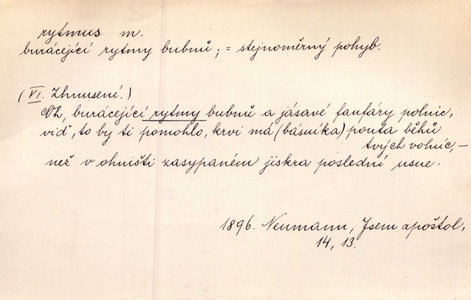 rytmus m.
burácející rytmy bubnů; = stejnoměrný pohyb.
(VI. Zhnusení.)
Ó, burácející rytmy bubnů a jásavé fanfáry polnic,
viď, to by ti pomohlo, krvi má (básníka) pouta běhů
tvých volnic, —
než v ohništi zasypaném jiskra poslední usne.
1896. Neumann, Jsem apoštol,
14, 13.